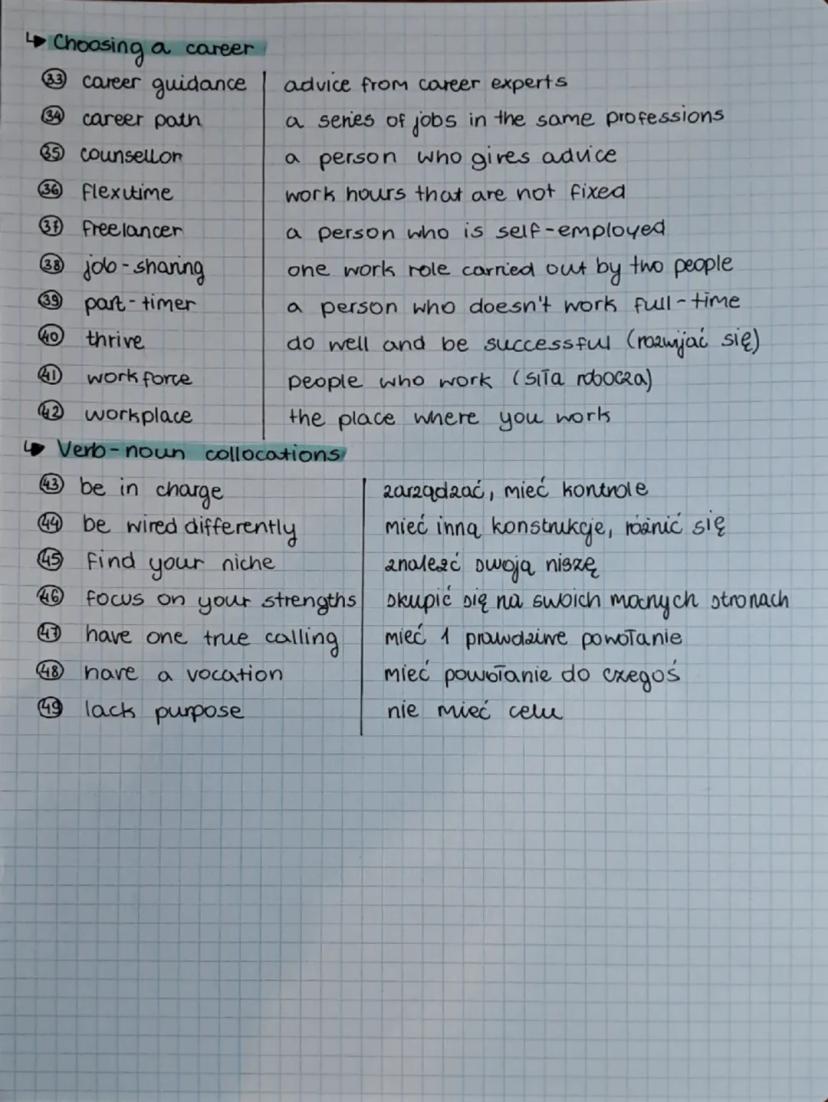 ↳ Choosing a career
33 career guidance | advice from career experts
34 career path | a series of jobs in the same professions
35 counsellor | a person who gives advice
36 flexitime | work hours that are not fixed
37 freelancer | a person who is self-employed
38 job-sharing | one work role carried out by two people
39 part-timer | a person who doesn't work full-time
40 thrive | do well and be successful (rozwijać się)
41 workforce | people who work (siła robocza)
42 workplace | the place where you work
↳ Verb-noun collocations
43 be in charge | zarządzać, mieć kontrole
44 be wired differently | mieć inną konstrukcje, różnić się
45 find your niche | znaleźć swoją niszę
46 focus on your strengths | skupić się na swoich mocnych stronach
47 have one true calling | mieć 1 prawdziwe powołanie
48 have a vocation | mieć powołanie do czegoś
49 lack purpose | nie mieć celu